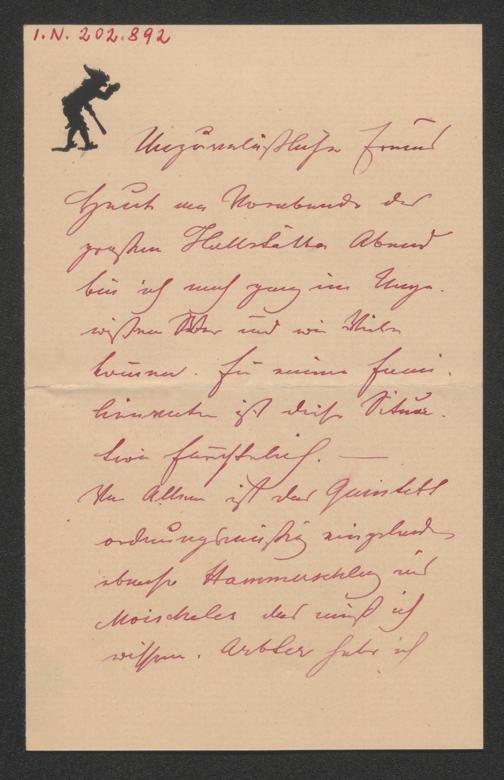 I.N. 202.892
Unzuverlässlicher Freund
Heute am Vorabende des
großen Hallstätter Abend
bin ich noch ganz im Unge-
wissen Wer und wie Viele
kommen. Für meine Fami-
lie ist diese Situa-
tion fürchterlich. —
Vor Allem ist das Quintett
ordnungsmäßig eingeladen
ebenso Hammerschlag und
Moischeles das muß ich
wissen. Arbter habe ich